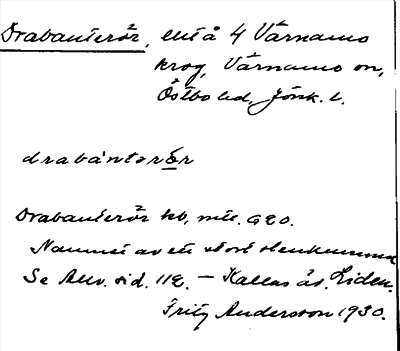 Drabanterör, elit å 4 Värnamo
krog, Värnamo sn,
Östbo hd, Jönk. l.
drabantərör
Drabanterör kb, mtl. G20.
Namnet av ett stort stenkummel
Se Anv. sid. 112. — Kallas äv. Liden.
Fritz Andersson 1930.